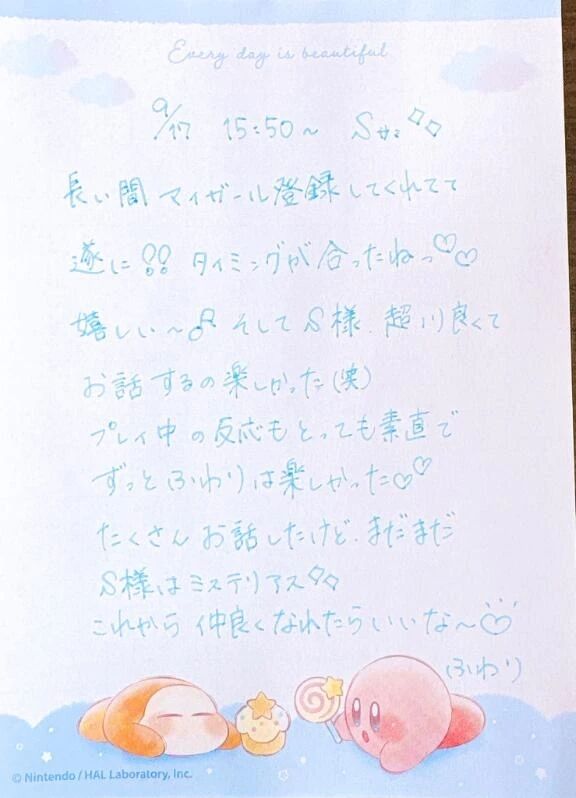 Every day is beautiful
9/17 15:50〜 Sサマ
長い間 マイガール登録してくれてて
遂に!! タイミングが合ったねっ♡♡
嬉しい〜♪ そしてS様、超ノリ良くて
お話するの楽しかった(笑)
プレイ中の反応もとっても素直で
ずっとふわりは楽しかった♡♡
たくさんお話したけど、まだまだ
S様はミステリアス
これから仲良くなれたらいいな〜♡
ふわり
© Nintendo / HAL Laboratory, Inc.